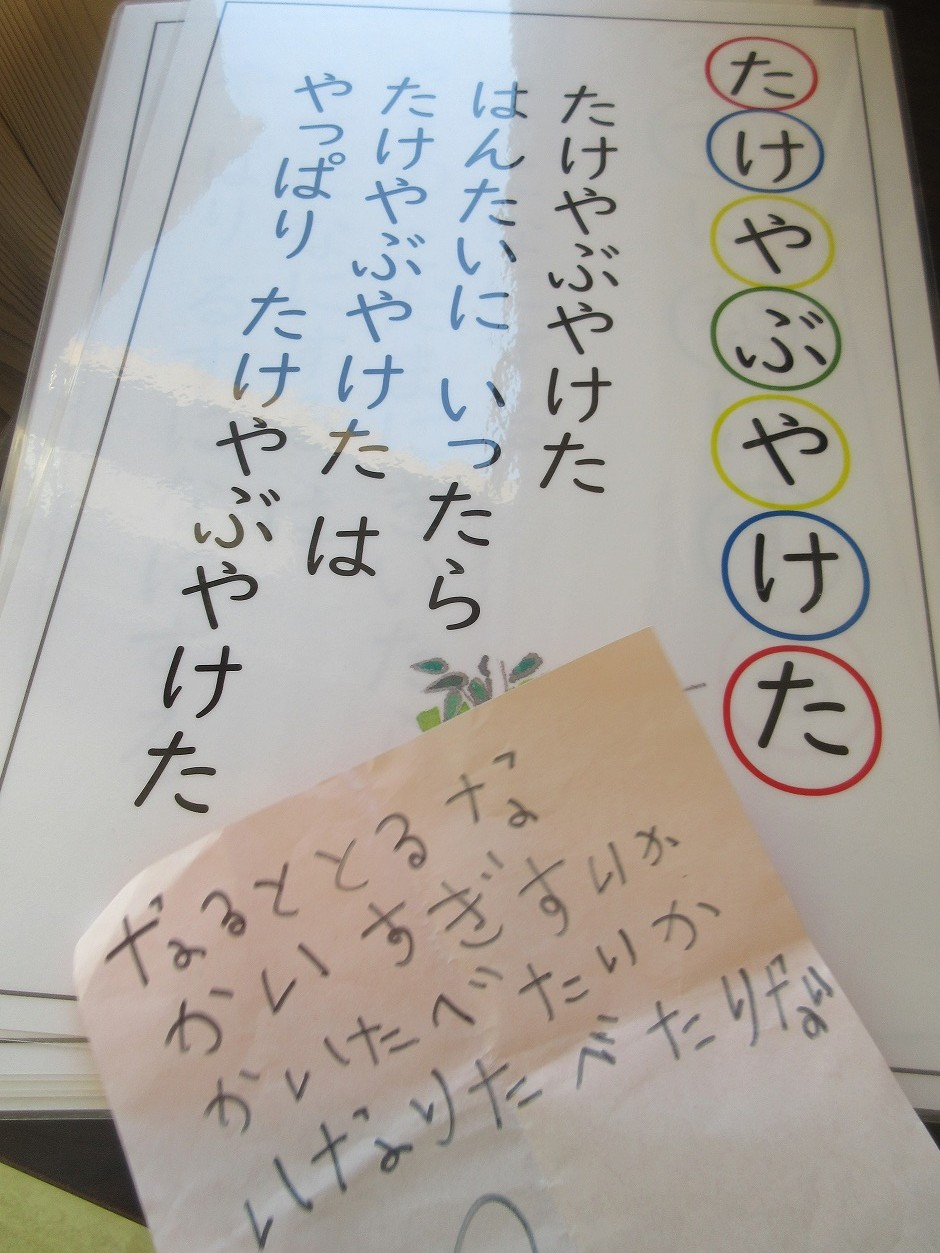 たけやぶやけた
たけやぶやけた
はんたいに いったら
たけやぶやけた は
やっぱり たけやぶやけた
なるととるな
かいすぎすいか
かいたべたいか
いなりたべたりない